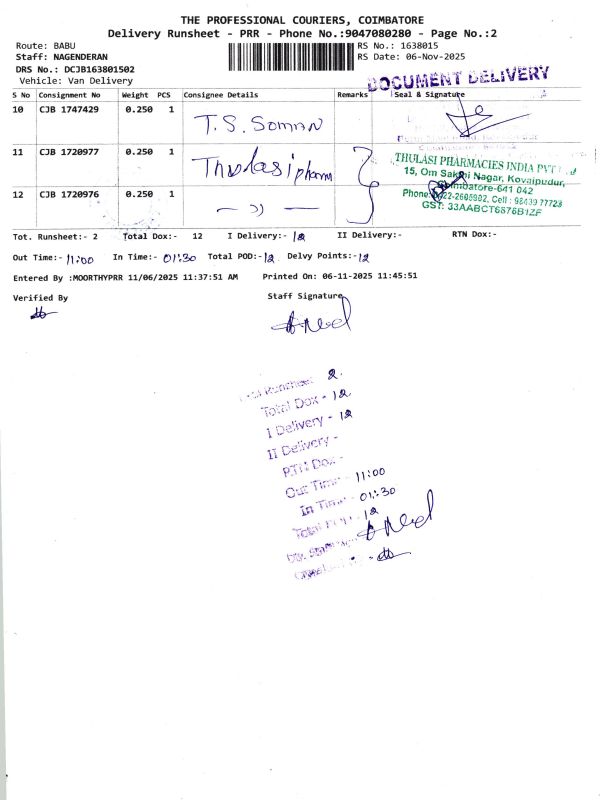 THE PROFESSIONAL COURIERS, COIMBATORE
Delivery Runsheet - PRR - Phone No.:9047080280 - Page No.:2
Route: BABU
RS No.: 1638015
Staff: NAGENDERAN
RS Date: 06-Nov-2025
DRS No.: DCJB163801502
Vehicle: Van Delivery
DOCUMENT DELIVERY
S No Consignment No Weight PCS Consignee Details Remarks Seal & Signature
10 CJB 1747429 0.250 1 T.S.
11 CJB 1720977 0.250 1 Thulasi pharm
12 CJB 1720976 0.250 1 — ,, —
THULASI PHARMACIES INDIA PVT
15, Om Sakthi Nagar, Kovaipudur,
Coimbatore-641 042
Phone: Cell : 98439 77723
GST: 33AABCT6676B1ZF
Tot. Runsheet:- 2 Total Dox:- 12 I Delivery:- 12 II Delivery:- RTN Dox:-
Out Time:- 11:00 In Time:- 01:30 Total POD:- 12 Delvy Points:- 12
Entered By :MOORTHYPRR 11/06/2025 11:37:51 AM Printed On: 06-11-2025 11:45:51
Verified By Staff Signature
Runsheet 2
Total Dox - 12
I Delivery - 12
II Delivery -
RTN Dox -
Out Time - 11:00
In Time - 01:30
Total POD - 12